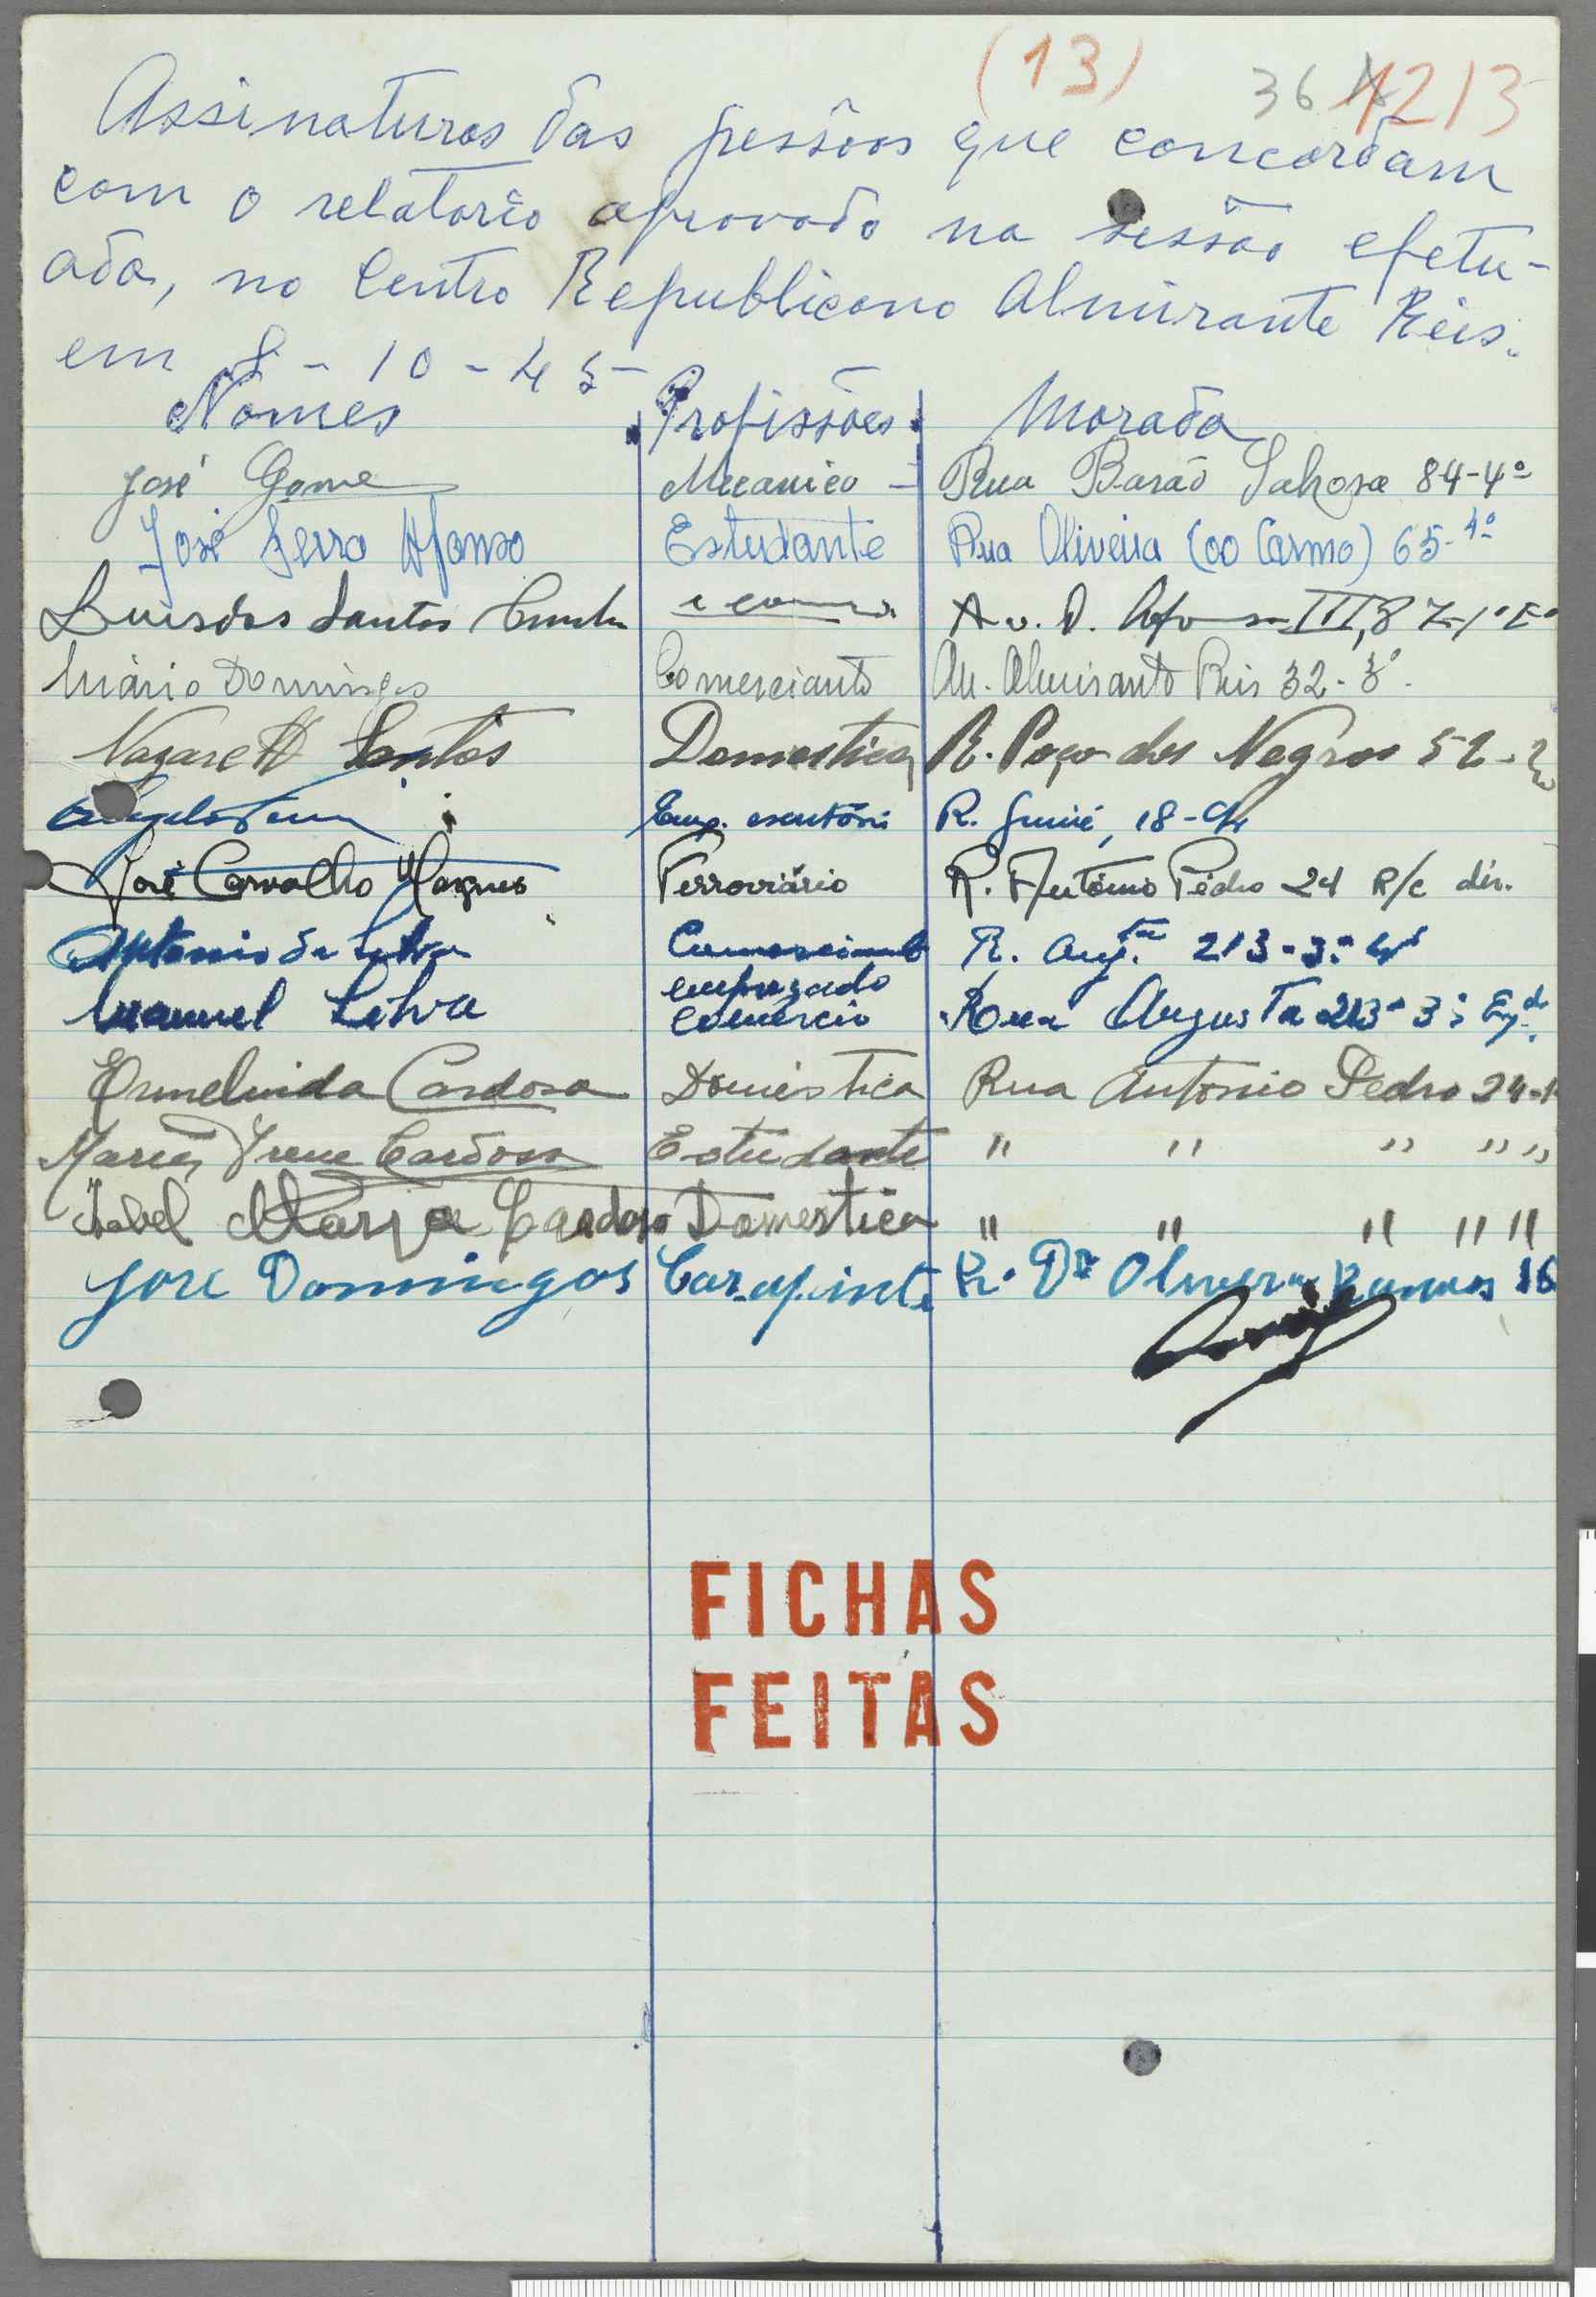 (13)
36 1213
Assinaturas das pessôas que concordam
com o relatorio aprovado na sessão efetu-
ada, no Centro Republicano Almirante Reis.
em 8-10-45-
Nomes Profissões Morada
José Gome Mecanico - Rua Barão Sabrosa 84-4º
José Serra Afonso Estudante Rua Oliveira (ao Carmo) 65-4º
Luis dos Santos Av. D. Afonso III, 87-1º Eº
Mário Domingos Comerciante Av. Almirante Reis 32-3º.
Nazareth Santos Domestica R. Poço dos Negros 52-2
Emp. escritório R. Guiné, 18-
José Carvalho Marques Ferroviário R. António Pedro 24 R/c dir.
Antonio da Silva Comerciante R. Aug.ta 213-3º
Manuel Silva empregado comércio Rua Augusta 213-3º Eq.do
Ermelinda Cardoso Doméstica Rua Antonio Pedro 24-1
Maria Irene Cardoso Estudante " " " " "
Isabel Maria Cardoso Domestica " " " " "
José Domingos Carapinte R. Dr Oliveira Ramos 16
FICHAS
FEITAS